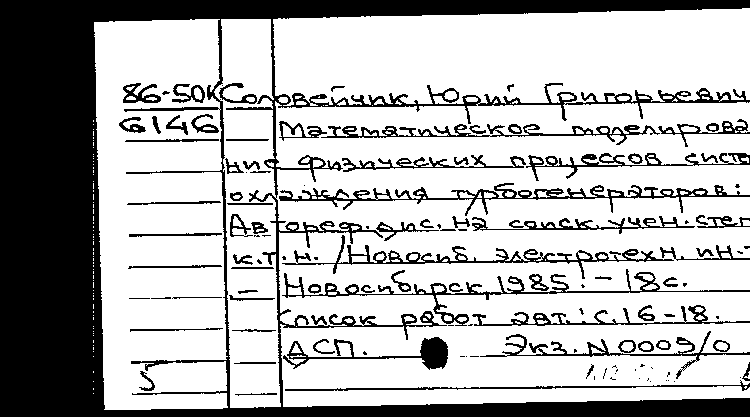 86-50К Соловейчик, Юрий Григорьевич
6146 Математическое моделирова
ние физических процессов систе
охлаждения турбогенераторов:
Автореф. дис. на соиск. учен. степ
к.т.н. / Новосиб. электротехн. ин-т
– Новосибирск, 1985. – 18 с.
Список работ авт.: с. 16-18.
ДСП. Экз. N 0009/0
5